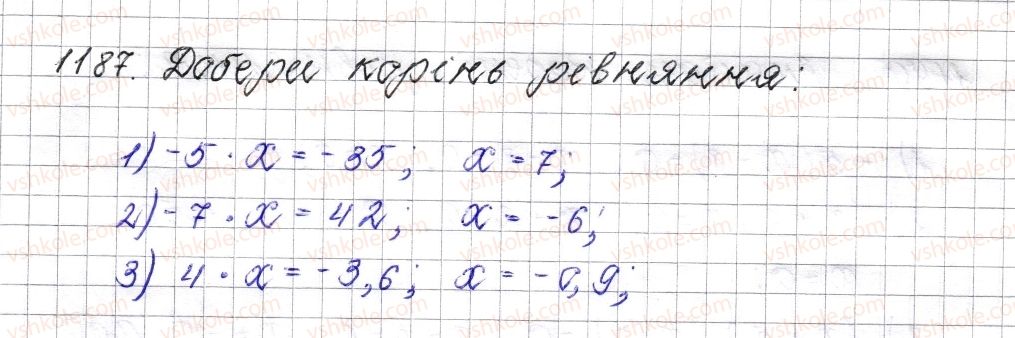 1187. Добери корінь рівняння:
1) -5 · x = -35; x = 7;
2) -7 · x = 42; x = -6;
3) 4 · x = -3,6; x = -0,9;